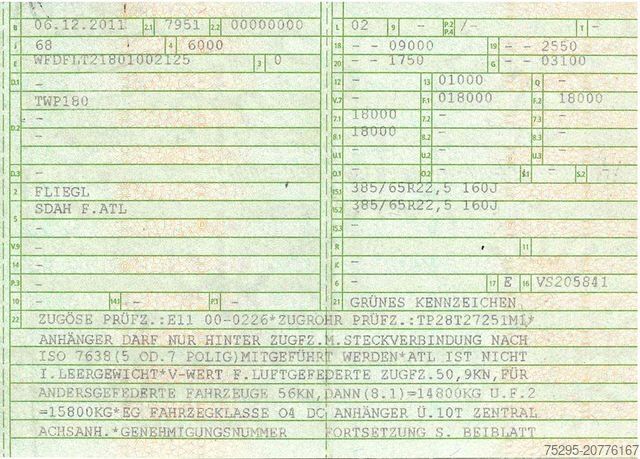 B 06.12.2011 2.1 7951 2.2 00000000
J 68 4 6000
E WFDFLT21801002125 3 0
D.1 -
TWP180
D.2 -
-
-
D.3 -
2 FLIEGL
5 SDAH F.ATL
-
V.9 -
14 -
P.3 -
10 - 14.1 - P.1 -
L 02 9 - P.2 P.4 -/- T -
18 - - 09000 19 - - 2550
20 - - 1750 G - - 03100
12 - 13 01000 Q -
V.7 - F.1 018000 F.2 18000
7.1 18000 7.2 - 7.3 -
8.1 18000 8.2 - 8.3 -
U.1 - U.2 - U.3 -
O.1 - O.2 - S.1 - S.2 -
15.1 385/65R22,5 160J
15.2 385/65R22,5 160J
15.3 -
R - 11 -
K -
6 - 17 E 16 VS205841
21 GRÜNES KENNZEICHEN
22 ZUGÖSE PRÜFZ.:E11 00-0226*ZUGROHR PRÜFZ.:TP28T27251M1*
ANHÄNGER DARF NUR HINTER ZUGFZ.M.STECKVERBINDUNG NACH
ISO 7638(5 OD.7 POLIG)MITGEFÜHRT WERDEN*ATL IST NICHT
I.LEERGEWICHT*V-WERT F.LUFTGEFEDERTE ZUGFZ.50,9KN,FÜR
ANDERSGEFEDERTE FAHRZEUGE 56KN,DANN(8.1)=14800KG U.F.2
=15800KG*EG FAHRZEGKLASSE O4 DC ANHÄNGER Ü.10T ZENTRAL
ACHSANH.*GENEHMIGUNGSNUMMER FORTSETZUNG S. BEIBLATT
75295-20776167